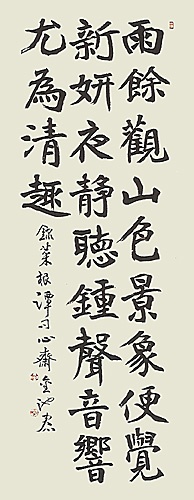 雨餘觀山色景象便覺
新妍夜靜聽鍾聲音響
尤為清趣
錄菜根譚句心齋